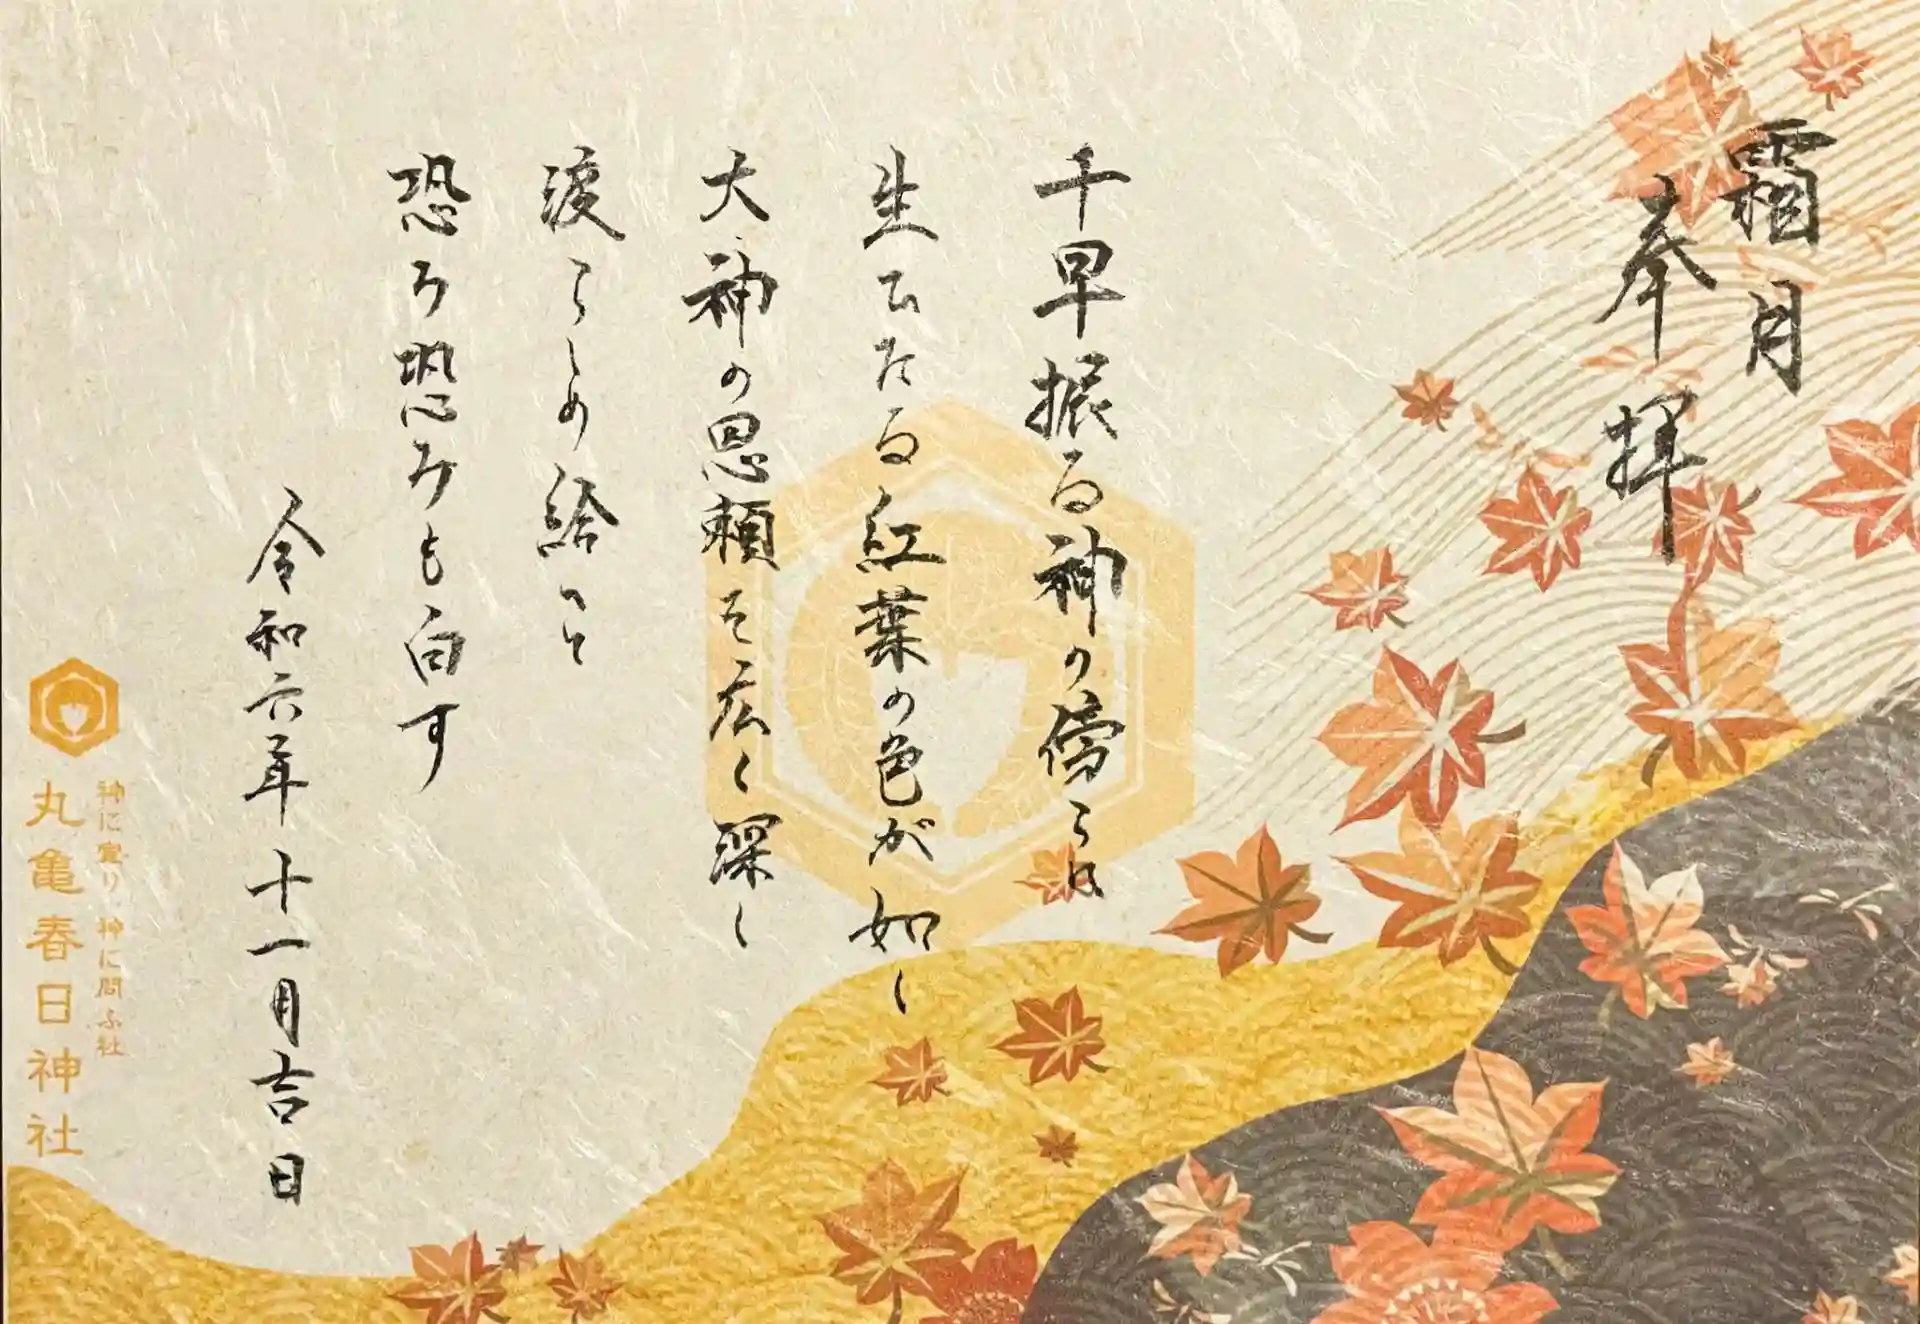 霜月
奉拝
千早振る神の傍らは
生ひたる紅葉の色が如し
大神の恩頼を広く深く
渡らしめ給へと
恐み恐みも白す
令和六年十一月吉日
神に宣り、神に問ふ社
丸亀春日神社